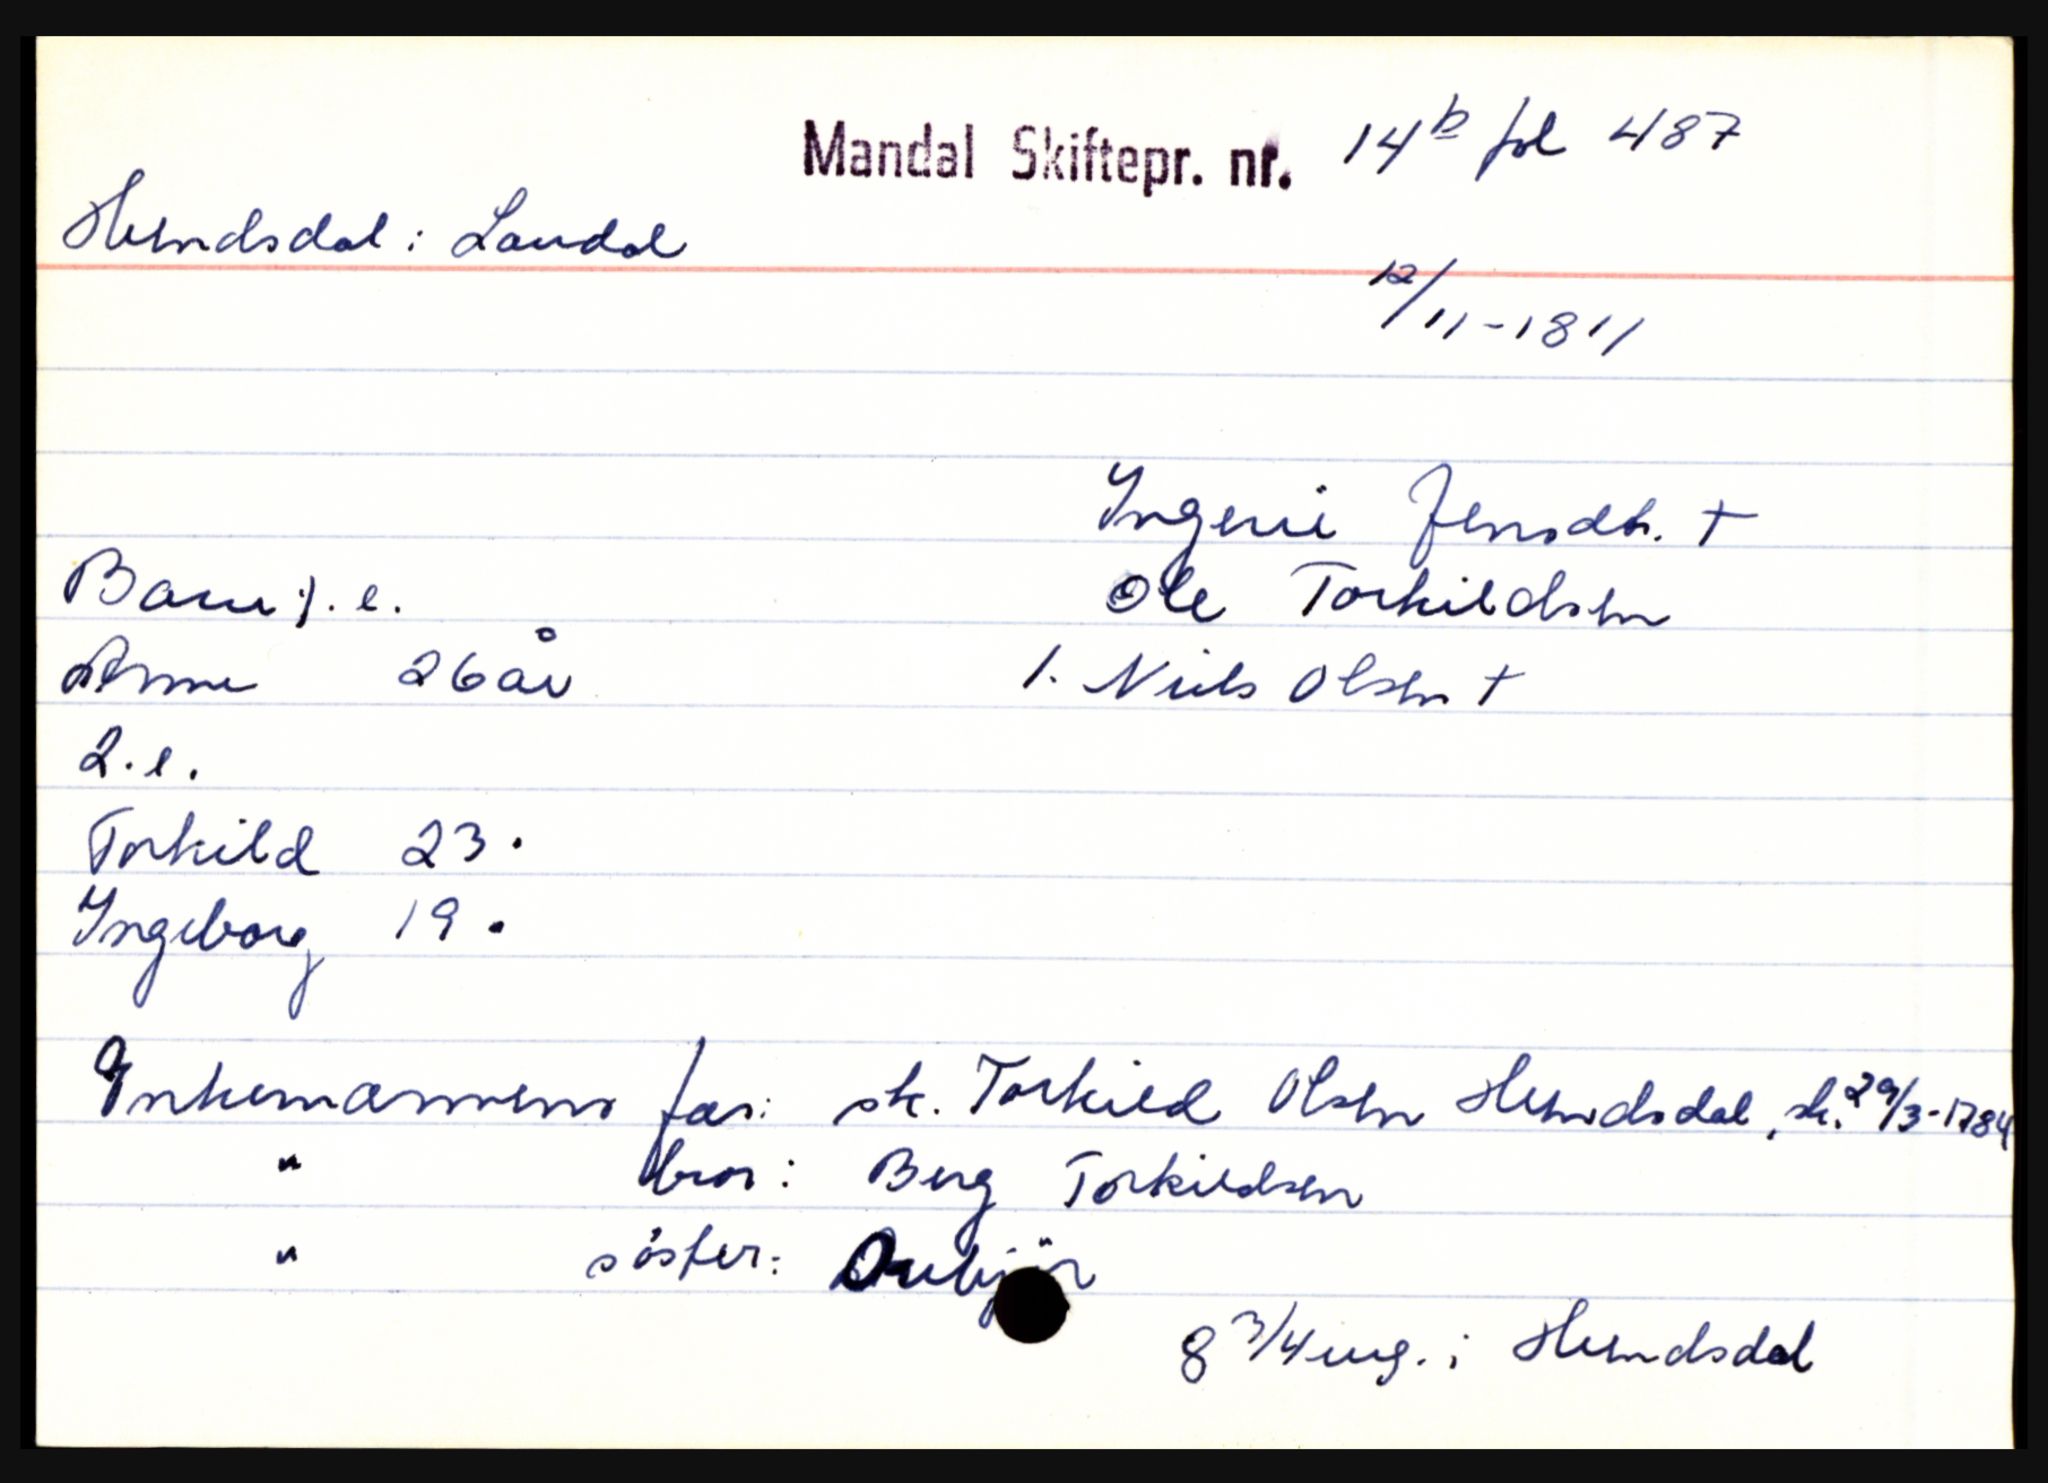 Mandal Skiftepr. nr. 14b fol 487
Hundsdal i Laudal
12/11-1811
Ingerie Jensdtr. †
Barn: 1. e. Ole Torkildsen
Anne 26 år 1. Niels Olsen †
2. e.
Torkild 23 "
Ingeborg 19 "
Enkemannens far: sk. Torkild Olsen Hundsdal, sk. 29/3-1784
" bror: Berg Torkildsen
" söster:
8 3/4 eng. i Hundsdal